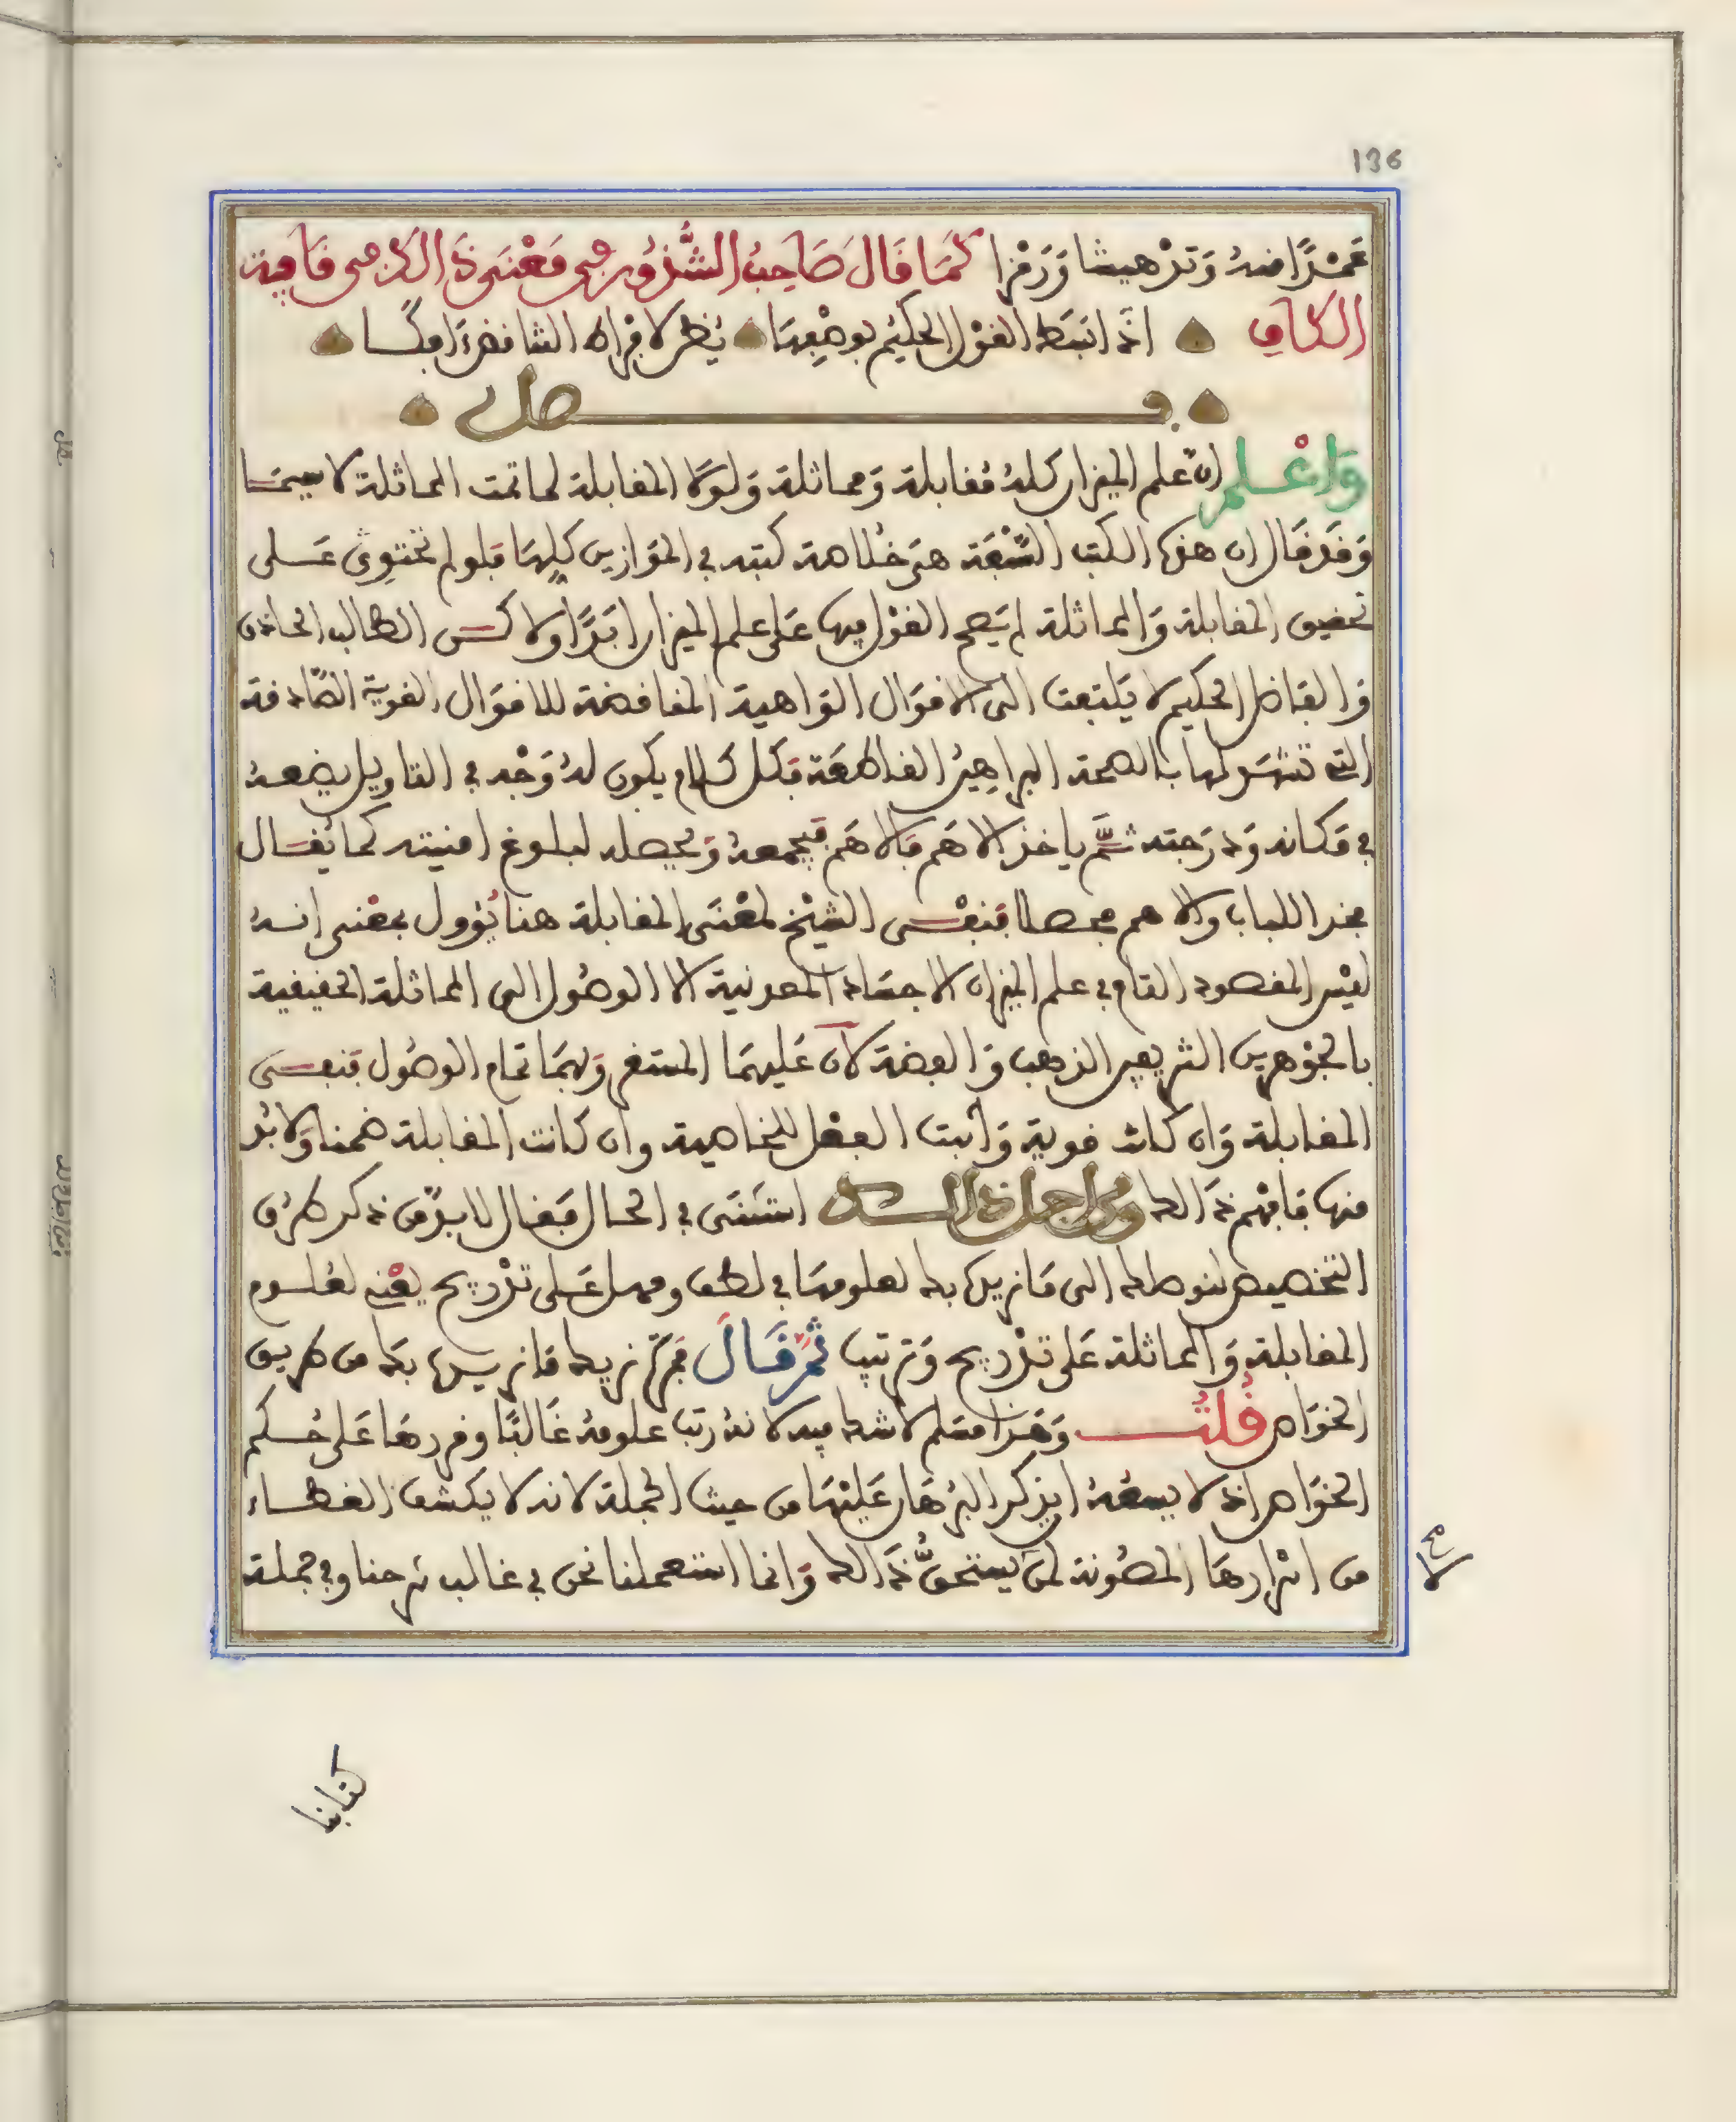 136
عمدًا منه وتدهيشا ورمزا كما قال صاحب الشذور في معنى ذالك في قافية
الكاف اذا انبسط القول الحكيم بوضعها يُظن لاقراه التناقض افكا
فصل
واعلم ان علم الميزان كله مقابلة ومماثلة ولولا المقابلة لما تمت المماثلة لا سيما
وقد قال ان هذه الكتب السبعة هي خلاصة كتبه في الموازين كلها فلو لم تحتوي على
تحقيق المقابلة والمماثلة لم يصح القول فيها على علم الميزان ابدًا ولاكن الطالب الحاذق
والفاضل الحكيم لا يلتفت الى الاقوال الواهية المناقضة للاقوال القوية الصادقة
التي تشهد لها بالصحة البراهين القاطعة فكل كلام يكون له وجه في التاويل يضعه
في مكانه ودرجته ثم ياخذ الاهم فالاهم فيجمعه ويحصله لبلوغ امنيته كما يقال
مجدا اللباب والاهم محصلا فنفى الشيخ لمعنى المقابلة هنا يؤول بمعنى انه
ليس المقصود التام في علم الميزان الاجساد المعدنية الا الوصول الى المماثلة الحقيقية
بالجوهرين الشريفين الذهب والفضة لان عليهما المستقر وبهما تمام الوصول فنفى
المقابلة وان كانت قوية واثبت الفعل للخاصية وان كانت المقابلة ضمنا ولا بد
منها فافهم ذالك ومن اجل ذالك استثنى في الحال فقال لا بد من ذكر طرق
التخصيص لنوصلك الى ما نريك بك لعلومها في لطف ومهل على تدريج يعني لعلوم
المقابلة والمماثلة على تدريج وترتيب ثم قال فمرة نريك ما نريدها بك من طريق
الخواص قلت وهذا مسلم لا شك فيه لانه رتب علومه غالبًا وقررها على حكم
الخواص اذ لا يسعه ان يذكر البرهان عليها من حيث الجملة لانه لا يكشف الغطاء
من اسرارها المصونة لمن يستحق ذالك وانما استعملنا نحن في غالب شرحنا وفي جملة
كتابنا